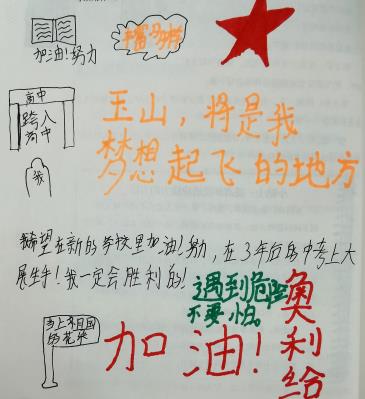 加油!努力
高中
跨入
高中
我
玉山,将是我
梦想起飞的地方
我希望在新的学校里加油!努力,在3年后的中考上大
展生手!我一定会胜利的!
遇到危险
不要怕。
奥利给
当上祖国
的花朵
加油!